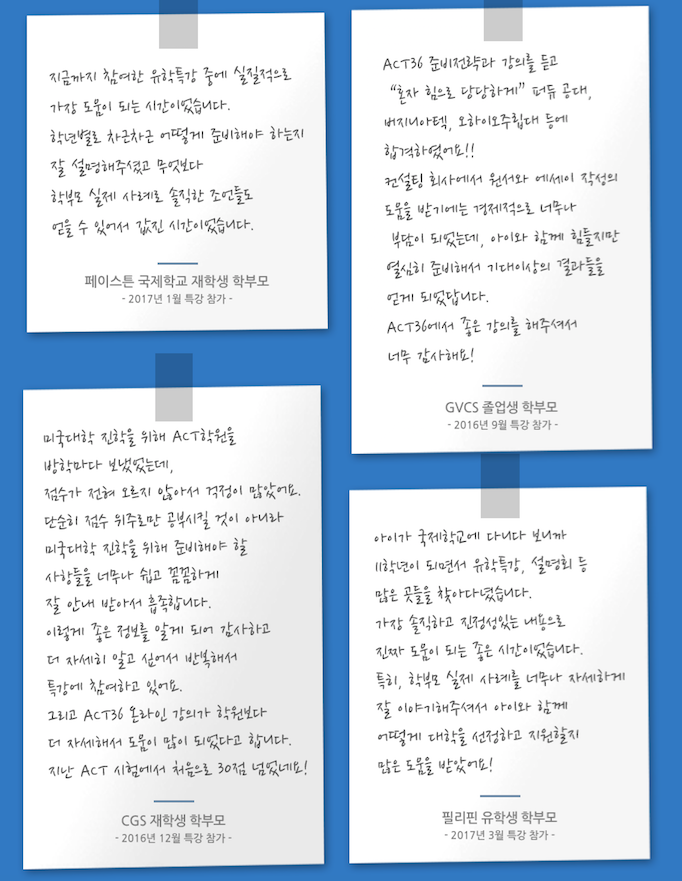 지금까지 참여한 유학특강 중에 실질적으로
가장 도움이 되는 시간이었습니다.
학년별로 차근차근 어떻게 준비해야 하는지
잘 설명해주셨고 무엇보다
학부모 실제 사례로 솔직한 조언들도
얻을 수 있어서 값진 시간이었습니다.
페이스튼 국제학교 재학생 학부모
- 2017년 1월 특강 참가 -
ACT36 준비전략과 강의를 듣고
“혼자 힘으로 당당하게” 퍼듀 공대,
버지니아텍, 오하이오주립대 등에
합격하였어요!!
컨설팅 회사에서 원서와 에세이 작성의
도움을 받기에는 경제적으로 너무나
부담이 되었는데, 아이와 함께 힘들지만
열심히 준비해서 기대이상의 결과들을
얻게 되었답니다.
ACT36에서 좋은 강의를 해주셔서
너무 감사해요!
GVCS 졸업생 학부모
- 2016년 9월 특강 참가 -
미국대학 진학을 위해 ACT학원을
방학마다 보냈었는데,
점수가 전혀 오르지 않아서 걱정이 많았어요.
단순히 점수 위주로만 공부시킬 것이 아니라
미국대학 진학을 위해 준비해야 할
사항들을 너무나 쉽고 꼼꼼하게
잘 안내 받아서 흡족합니다.
이렇게 좋은 정보를 알게 되어 감사하고
더 자세히 알고 싶어서 반복해서
특강에 참여하고 있어요.
그리고 ACT36 온라인 강의가 학원보다
더 자세해서 도움이 많이 되었다고 합니다.
지난 ACT 시험에서 처음으로 30점 넘었네요!
CGS 재학생 학부모
- 2016년 12월 특강 참가 -
아이가 국제학교에 다니다 보니까
11학년이 되면서 유학특강, 설명회 등
많은 곳들을 찾아다녔습니다.
가장 솔직하고 진정성있는 내용으로
진짜 도움이 되는 좋은 시간이었습니다.
특히, 학부모 실제 사례를 너무나 자세하게
잘 이야기해주셔서 아이와 함께
어떻게 대학을 선정하고 지원할지
많은 도움을 받았어요!
필리핀 유학생 학부모
- 2017년 3월 특강 참가 -